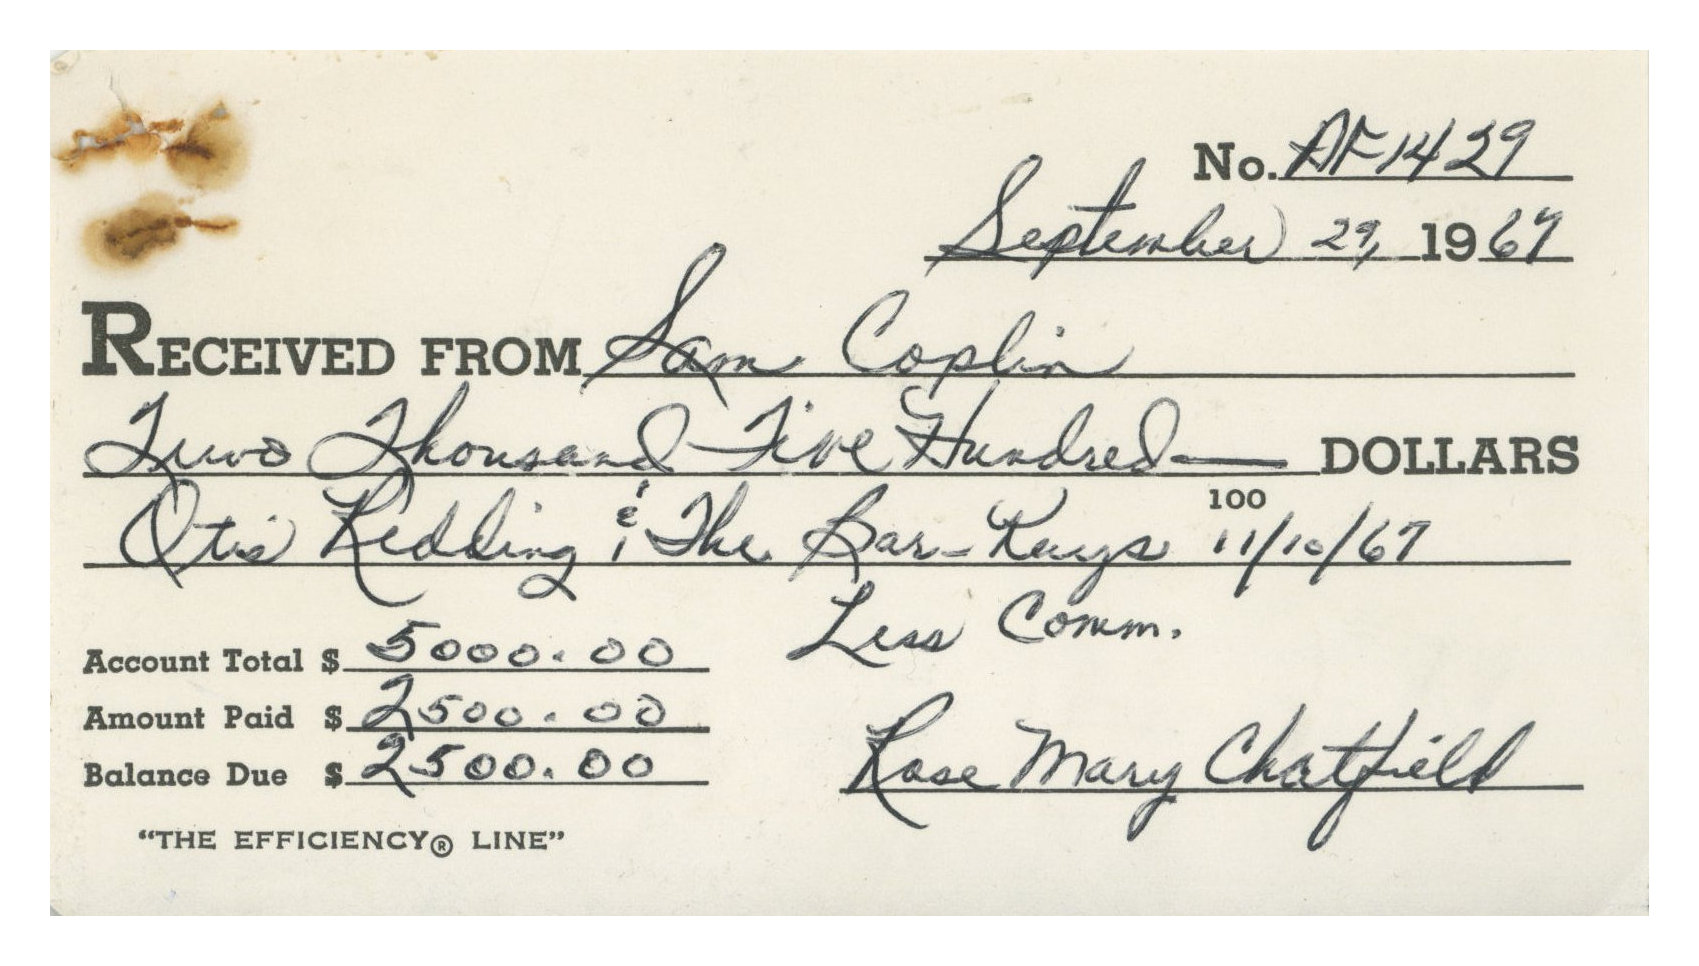 No. AF1429
September 29, 1967
RECEIVED FROM Sam Coplin
Two Thousand Five Hundred — DOLLARS
100
Otis Redding & The Bar-Kays 11/10/67
Less Comm.
Account Total $ 5000.00
Amount Paid $ 2500.00
Balance Due $ 2500.00
Rose Mary Chatfield
“THE EFFICIENCY® LINE”